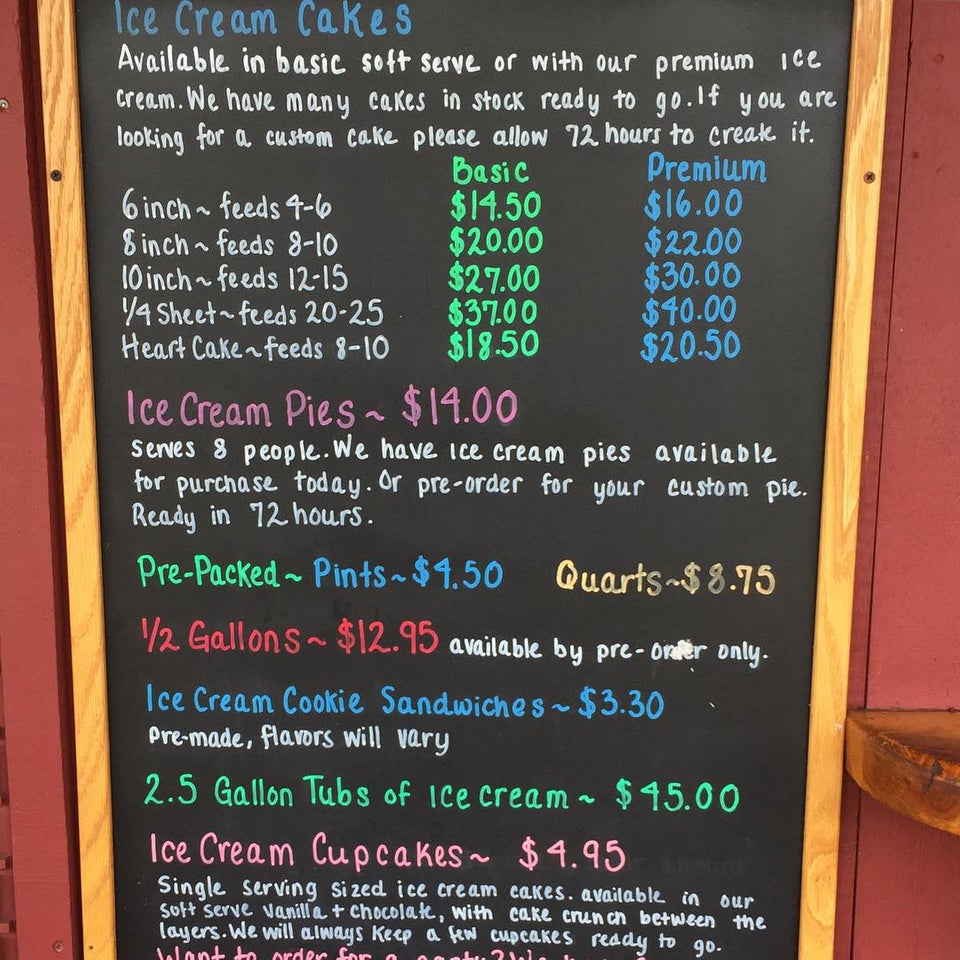 Ice Cream Cakes
Available in basic soft serve or with our premium ice
cream. We have many cakes in stock ready to go. If you are
looking for a custom cake please allow 72 hours to create it.
Basic Premium
6 inch ~ feeds 4-6 $14.50 $16.00
8 inch ~ feeds 8-10 $20.00 $22.00
10 inch ~ feeds 12-15 $27.00 $30.00
1/4 Sheet ~ feeds 20-25 $37.00 $40.00
Heart Cake ~ feeds 8-10 $18.50 $20.50
Ice Cream Pies ~ $14.00
Serves 8 people. We have ice cream pies available
for purchase today. Or pre-order for your custom pie.
Ready in 72 hours.
Pre-Packed ~ Pints ~ $4.50 Quarts ~ $8.75
1/2 Gallons ~ $12.95 available by pre-order only.
Ice Cream Cookie Sandwiches ~ $3.30
Pre-made, flavors will vary
2.5 Gallon Tubs of ice cream ~ $45.00
Ice Cream Cupcakes ~ $4.95
Single serving sized ice cream cakes. available in our
soft serve vanilla + chocolate, with cake crunch between the
layers. We will always keep a few cupcakes ready to go.
Want to order for a party? We